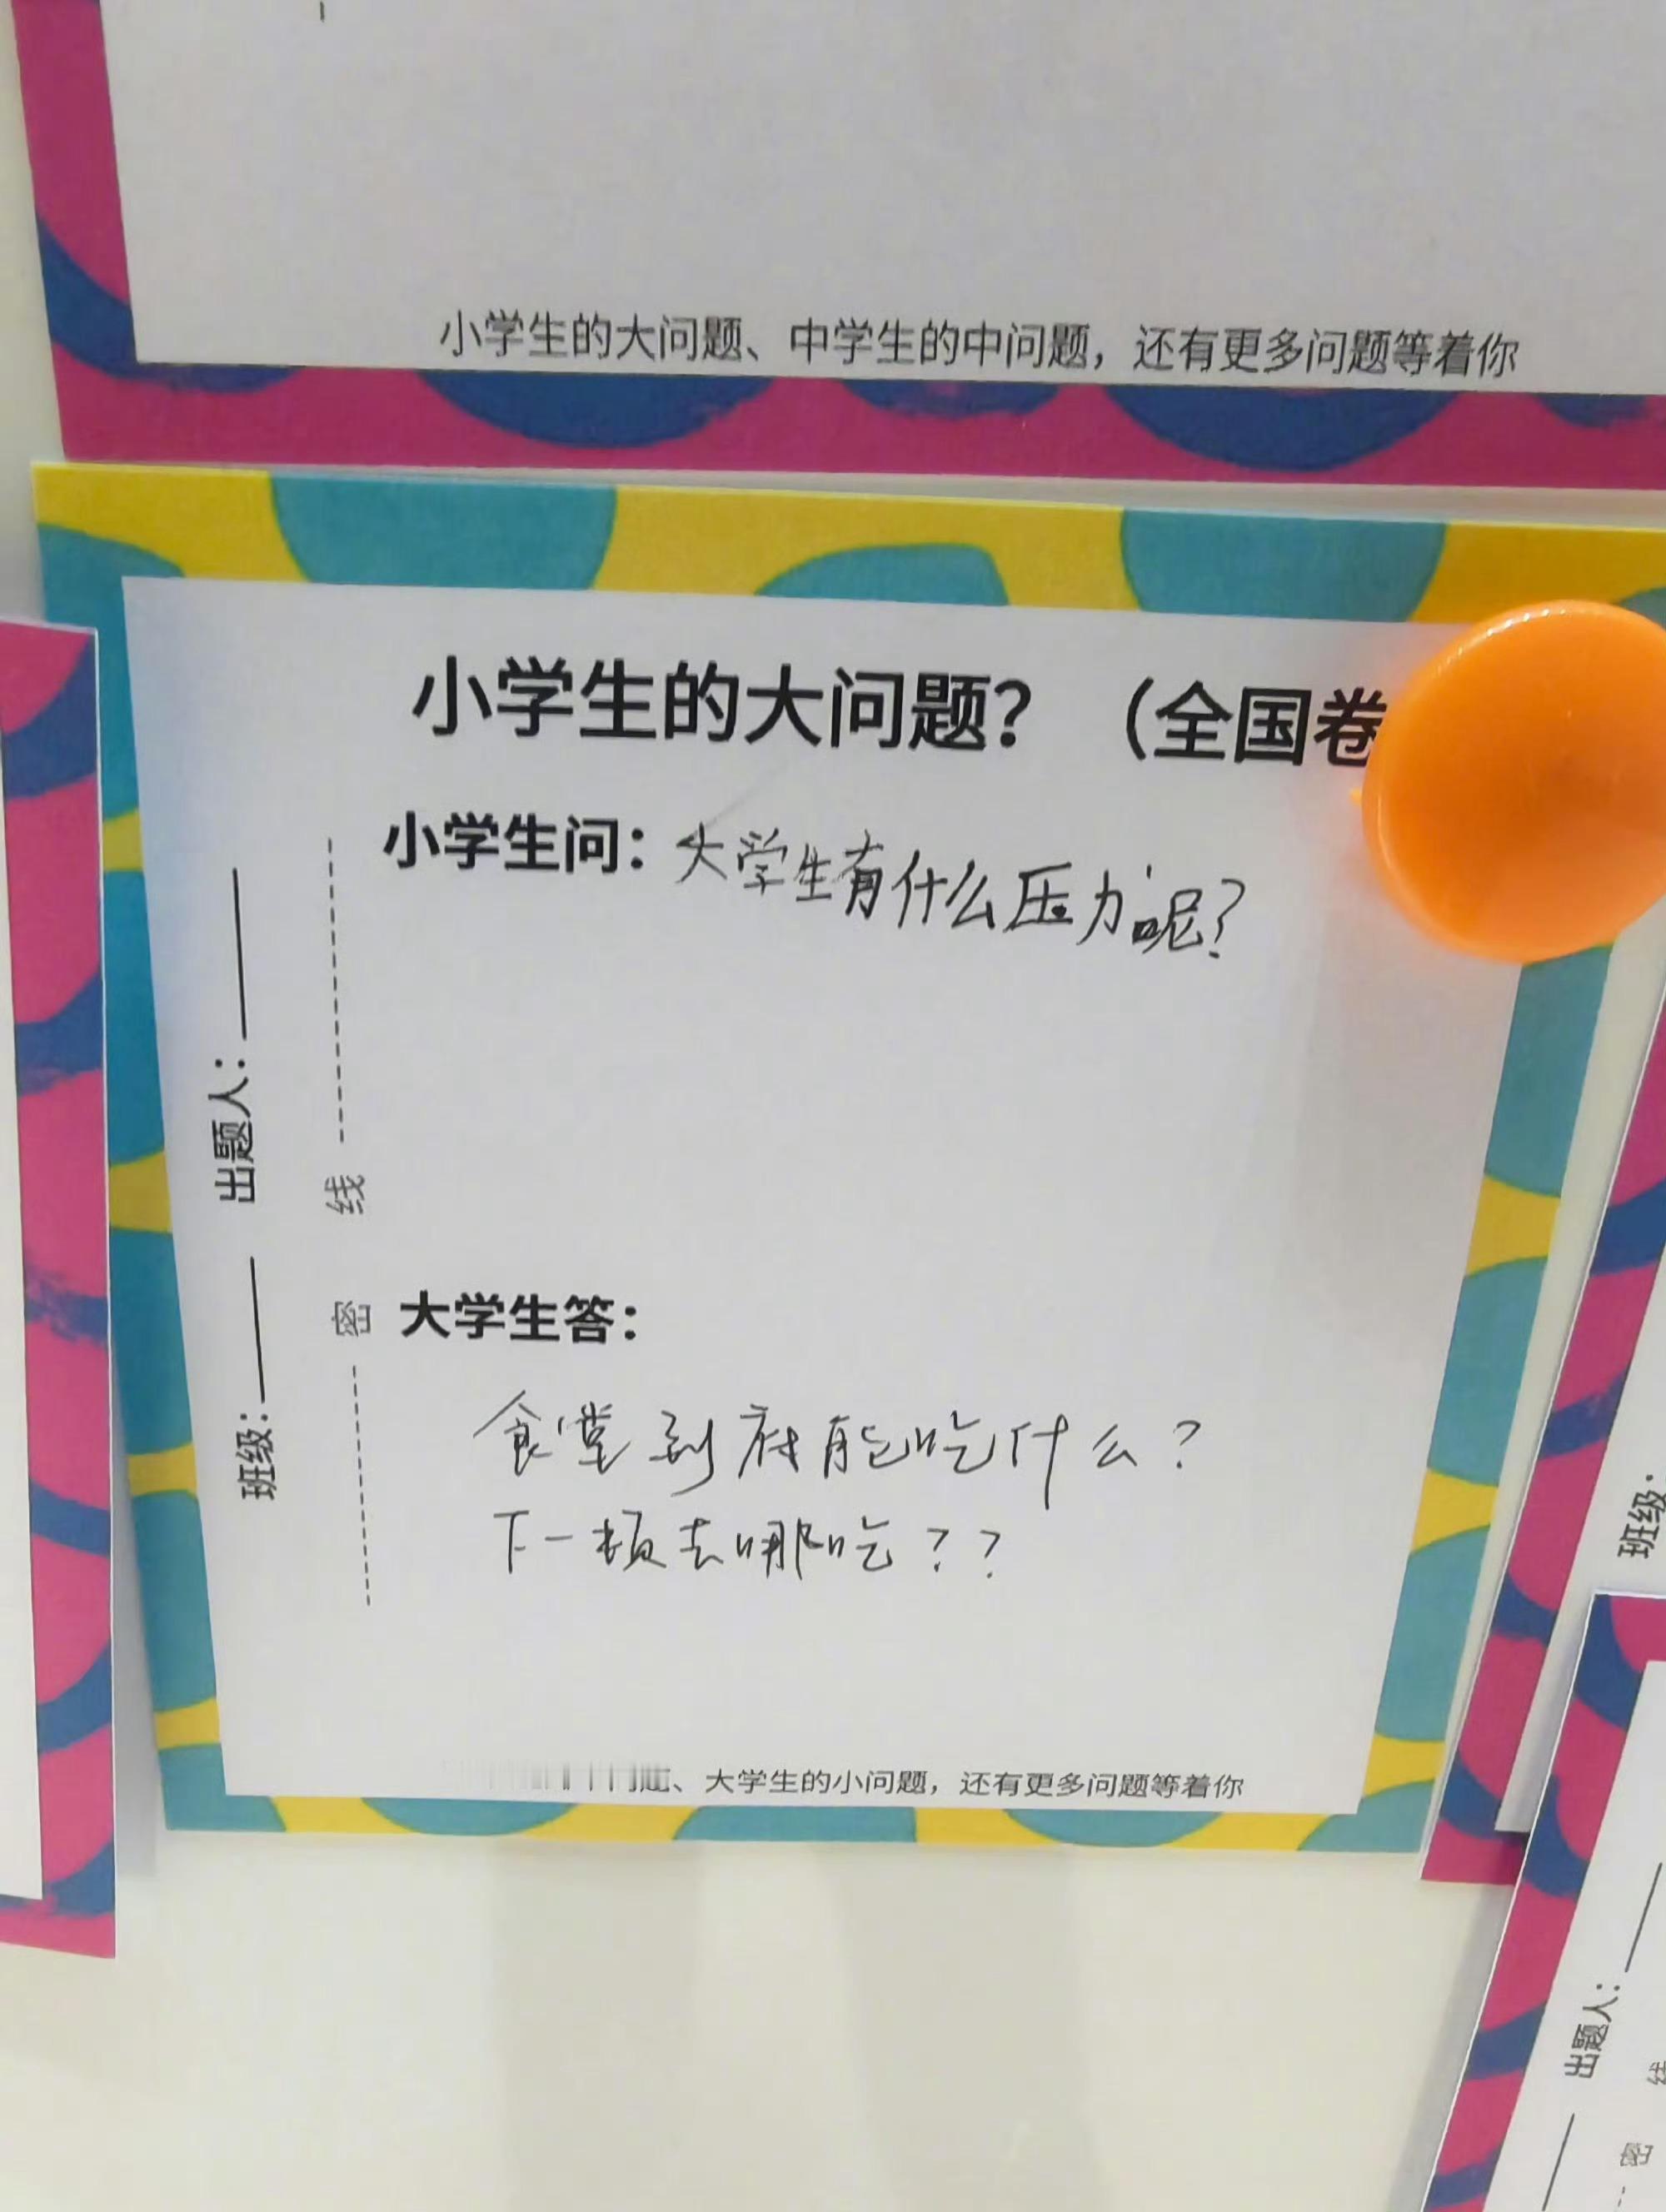 小学生的大问题、中学生的中问题，还有更多问题等着你
小学生的大问题？（全国卷
小学生问：大学生有什么压力呢？
出题人：
班级：
线
密
大学生答：
食堂到底能吃什么？
下一顿去哪吃？？
、大学生的小问题，还有更多问题等着你
班级：
出题人：
线
密